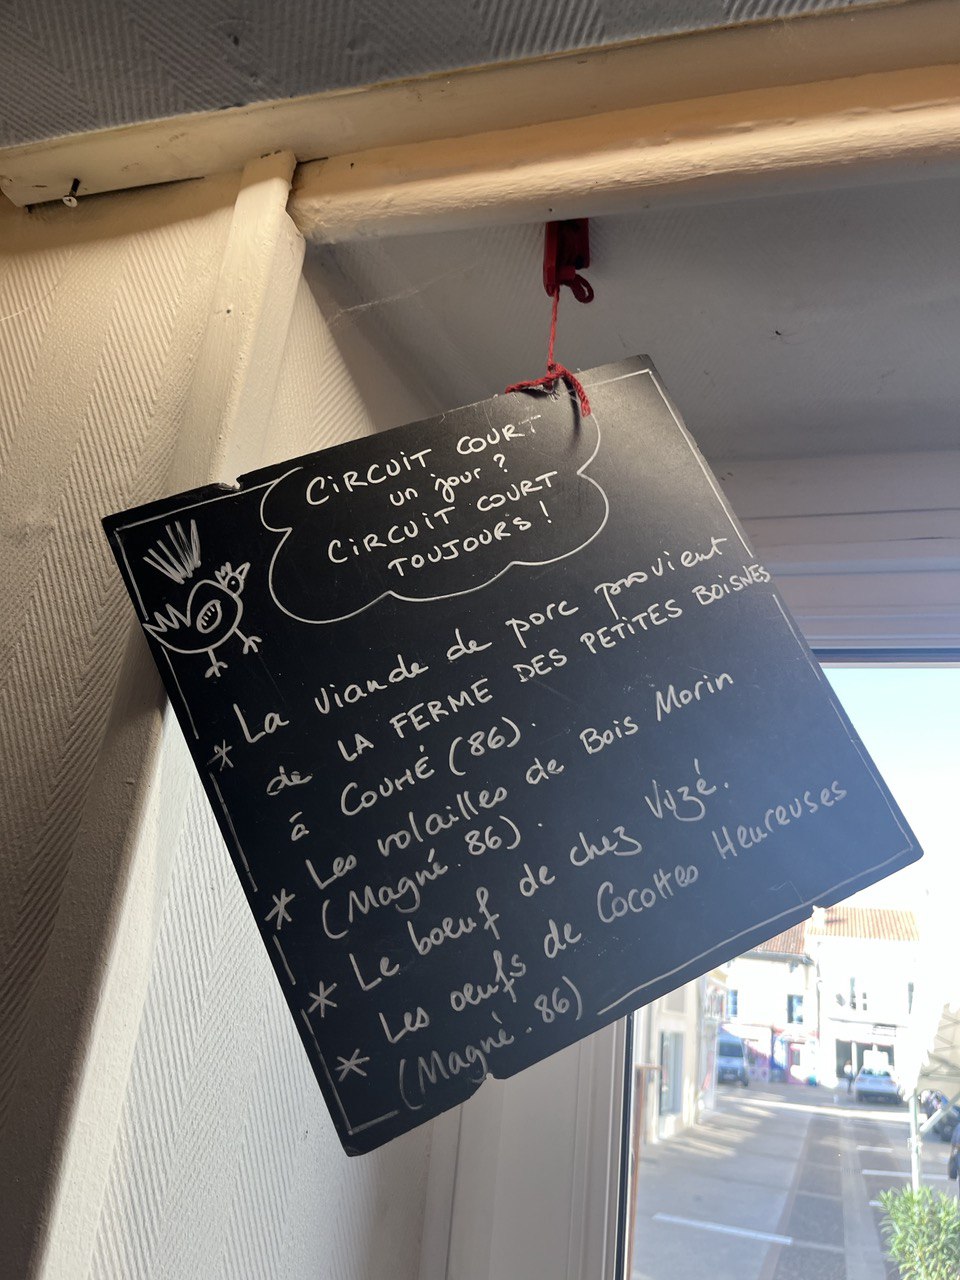 CiRCUiT COURT
un jour ?
CiRCUiT COURT
TOUJOURS !
* La viande de porc provient
de LA FERME DES PETiTES BOiSNES
à COUHÉ (86).
* Les volailles de Bois Morin
(Magné. 86).
* Le boeuf de chez Vyzé.
* Les oeufs de Cocottes Heureuses
(Magné. 86)